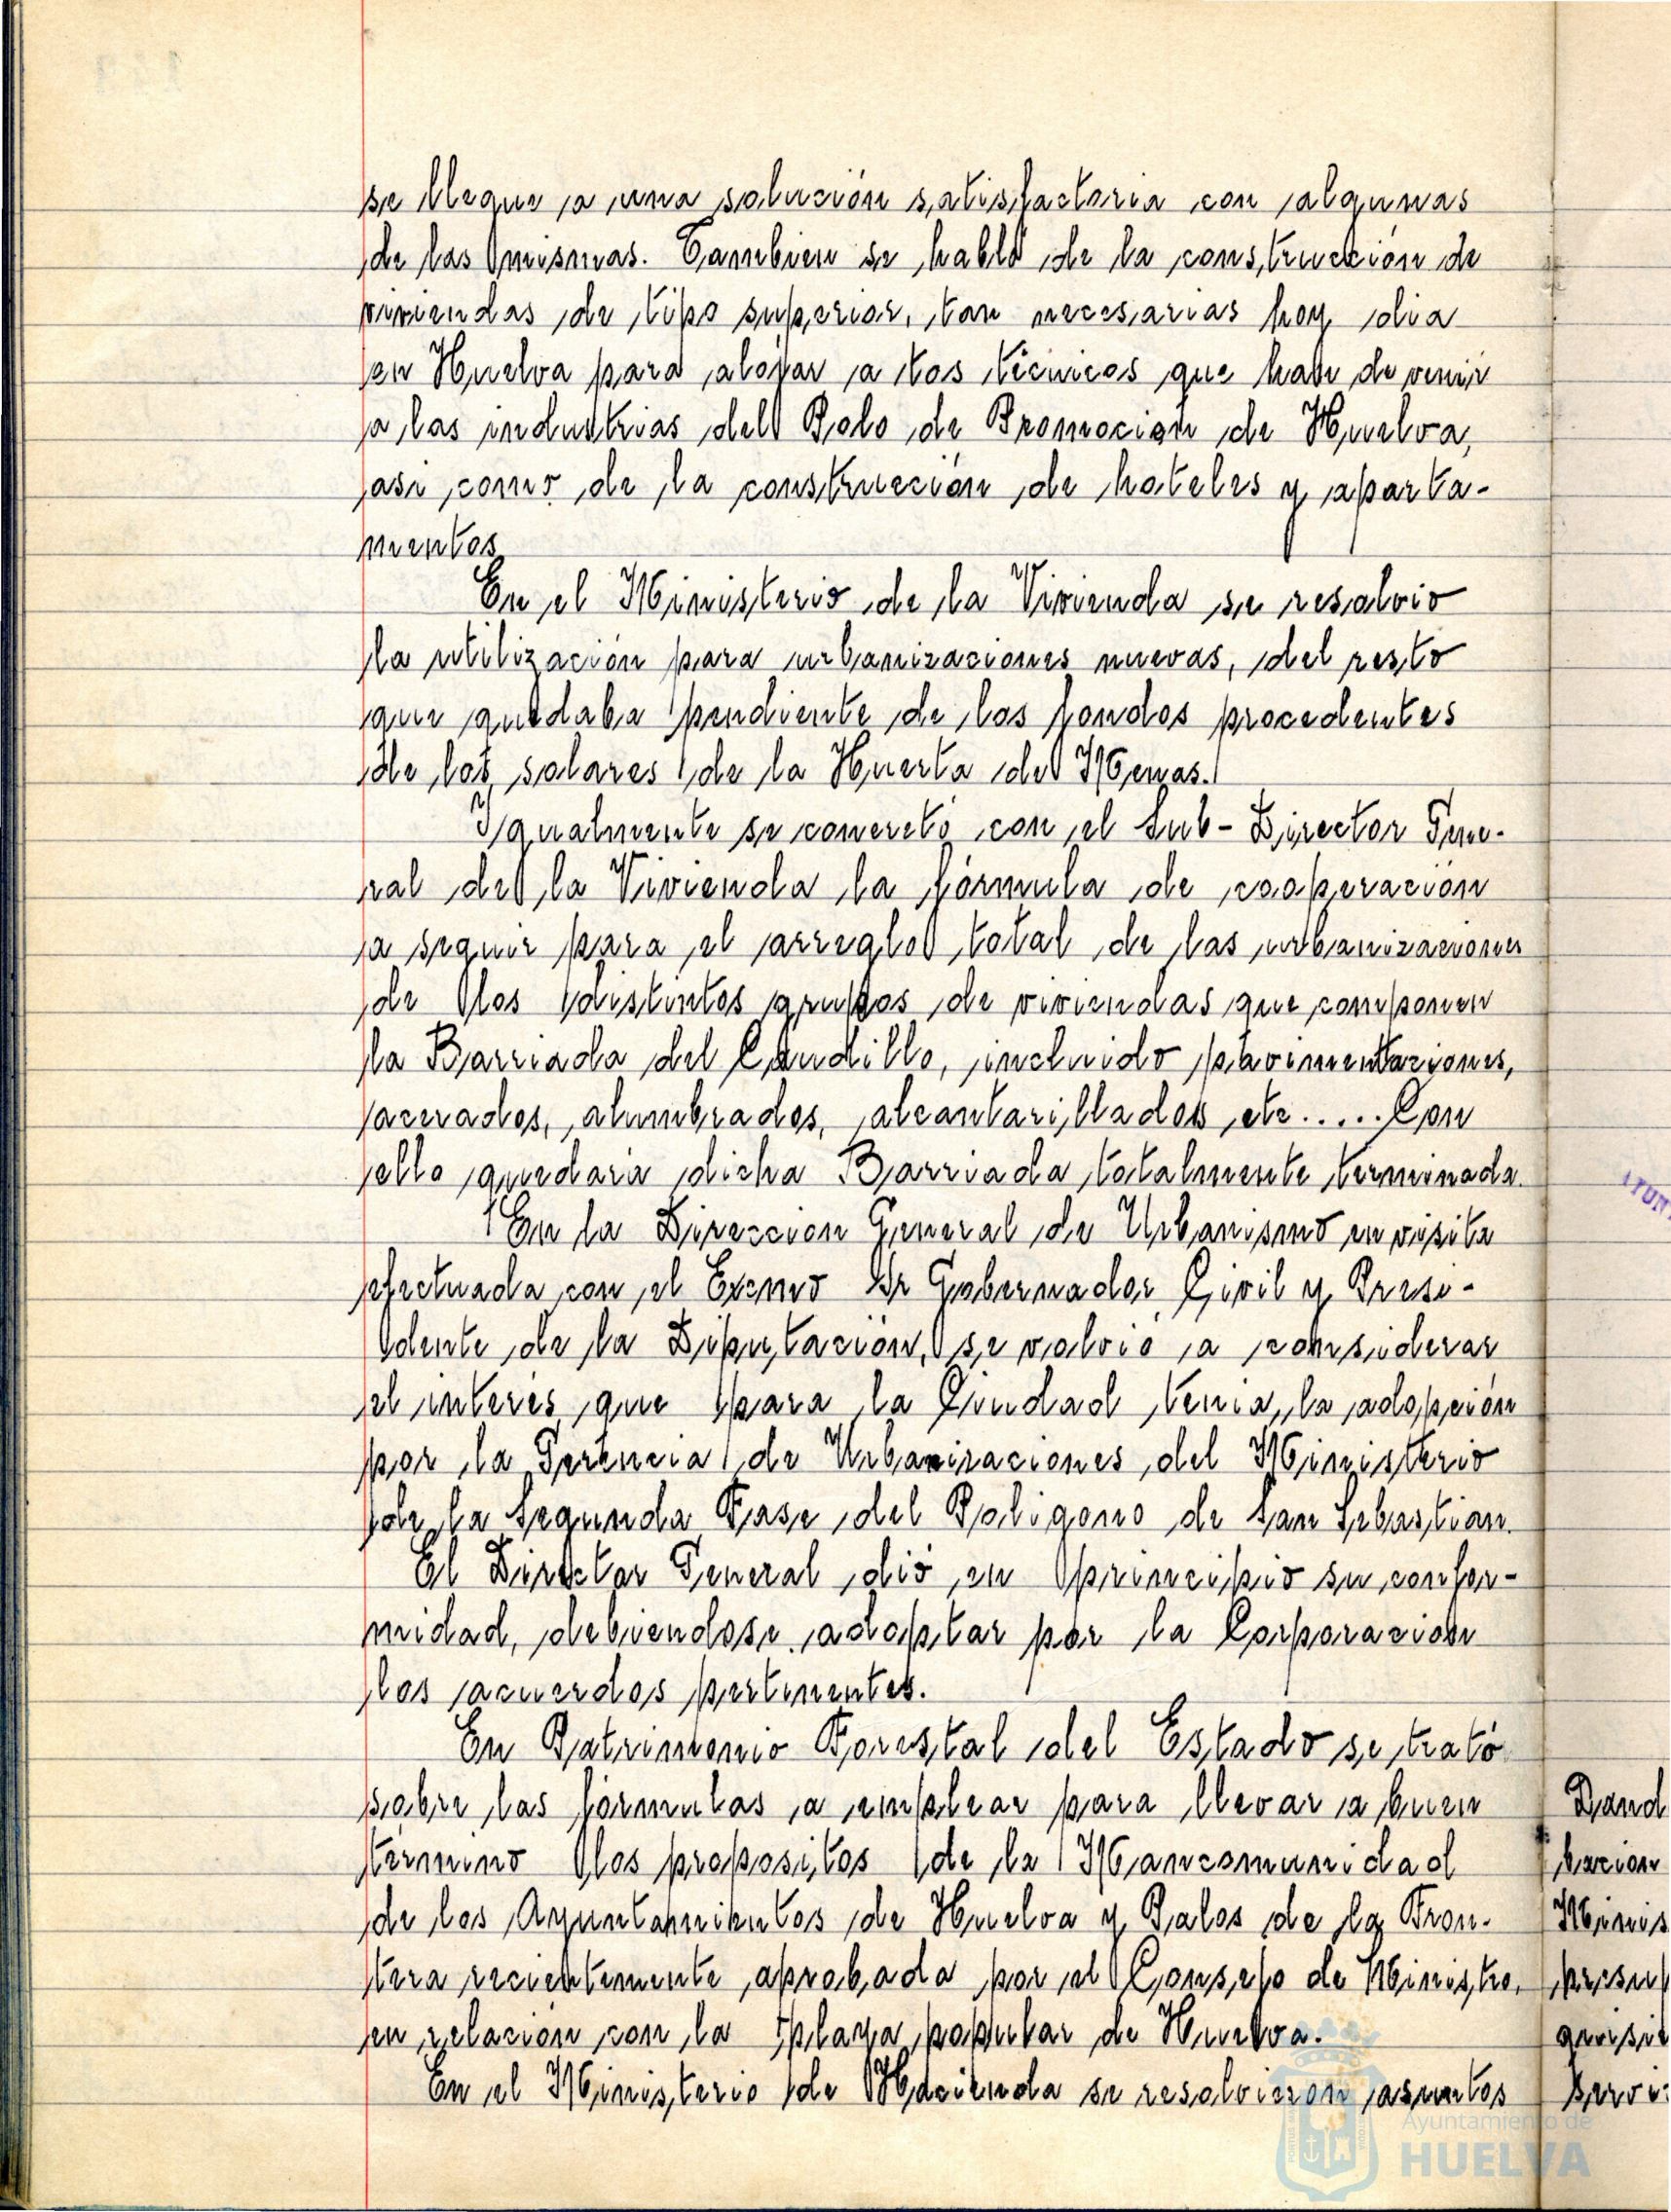 se llegue a una solución satisfactoria con algunas
de las mismas. Tambien se habló de la construcción de
viviendas de tipo superior, tan necesarias hoy dia
en Huelva para alojar a los técnicos que habr de venir
a las industrias del Polo de Promoción de Huelva,
asi como de la construcción de hoteles y aparta-
mentos
En el Ministerio de la Vivienda se resolvio
la utilización para urbanizaciones nuevas, del resto
que quedaba pendiente de los fondos procedentes
de los solares de la Huerta de Mena.
Igualmente se concretó con el Sub-Director Gene-
ral de la Vivienda la fórmula de cooperación
a seguir para el arreglo total de las urbanizaciones
de los distintos grupos de viviendas que componen
la Barriada del Caudillo, incluido pavimentaciones,
acerados, alumbrados, alcantarillados etc..... Con
ello quedaria dicha Barriada totalmente terminada.
En la Dirección General de Urbanismo en visita
efectuada con el Excmo Sr Gobernador Civil y Presi-
dente de la Diputación, se volvió a considerar
el interés que para la Ciudad tenia, la adopción
por la Gerencia de Urbanizaciones del Ministerio
de la Segunda Fase del Poligono de San Sebastian.
El Director General dió en principio su confor-
midad, debiendose adoptar por la Corporación
los acuerdos pertinentes.
En Patrimonio Forestal del Estado se trató
sobre las fórmulas a emplear para llevar a buen
termino los propositos de la Mancomunidad
de los Ayuntamientos de Huelva y Palos de la Fron-
tera recientemente aprobada por el Consejo de Ministro,
en relación con la playa popular de Huelva.
En el Ministerio de Hacienda se resolvieron asuntos
Dand
bacion
Minis
presu
Ayuntamiento de
HUELVA